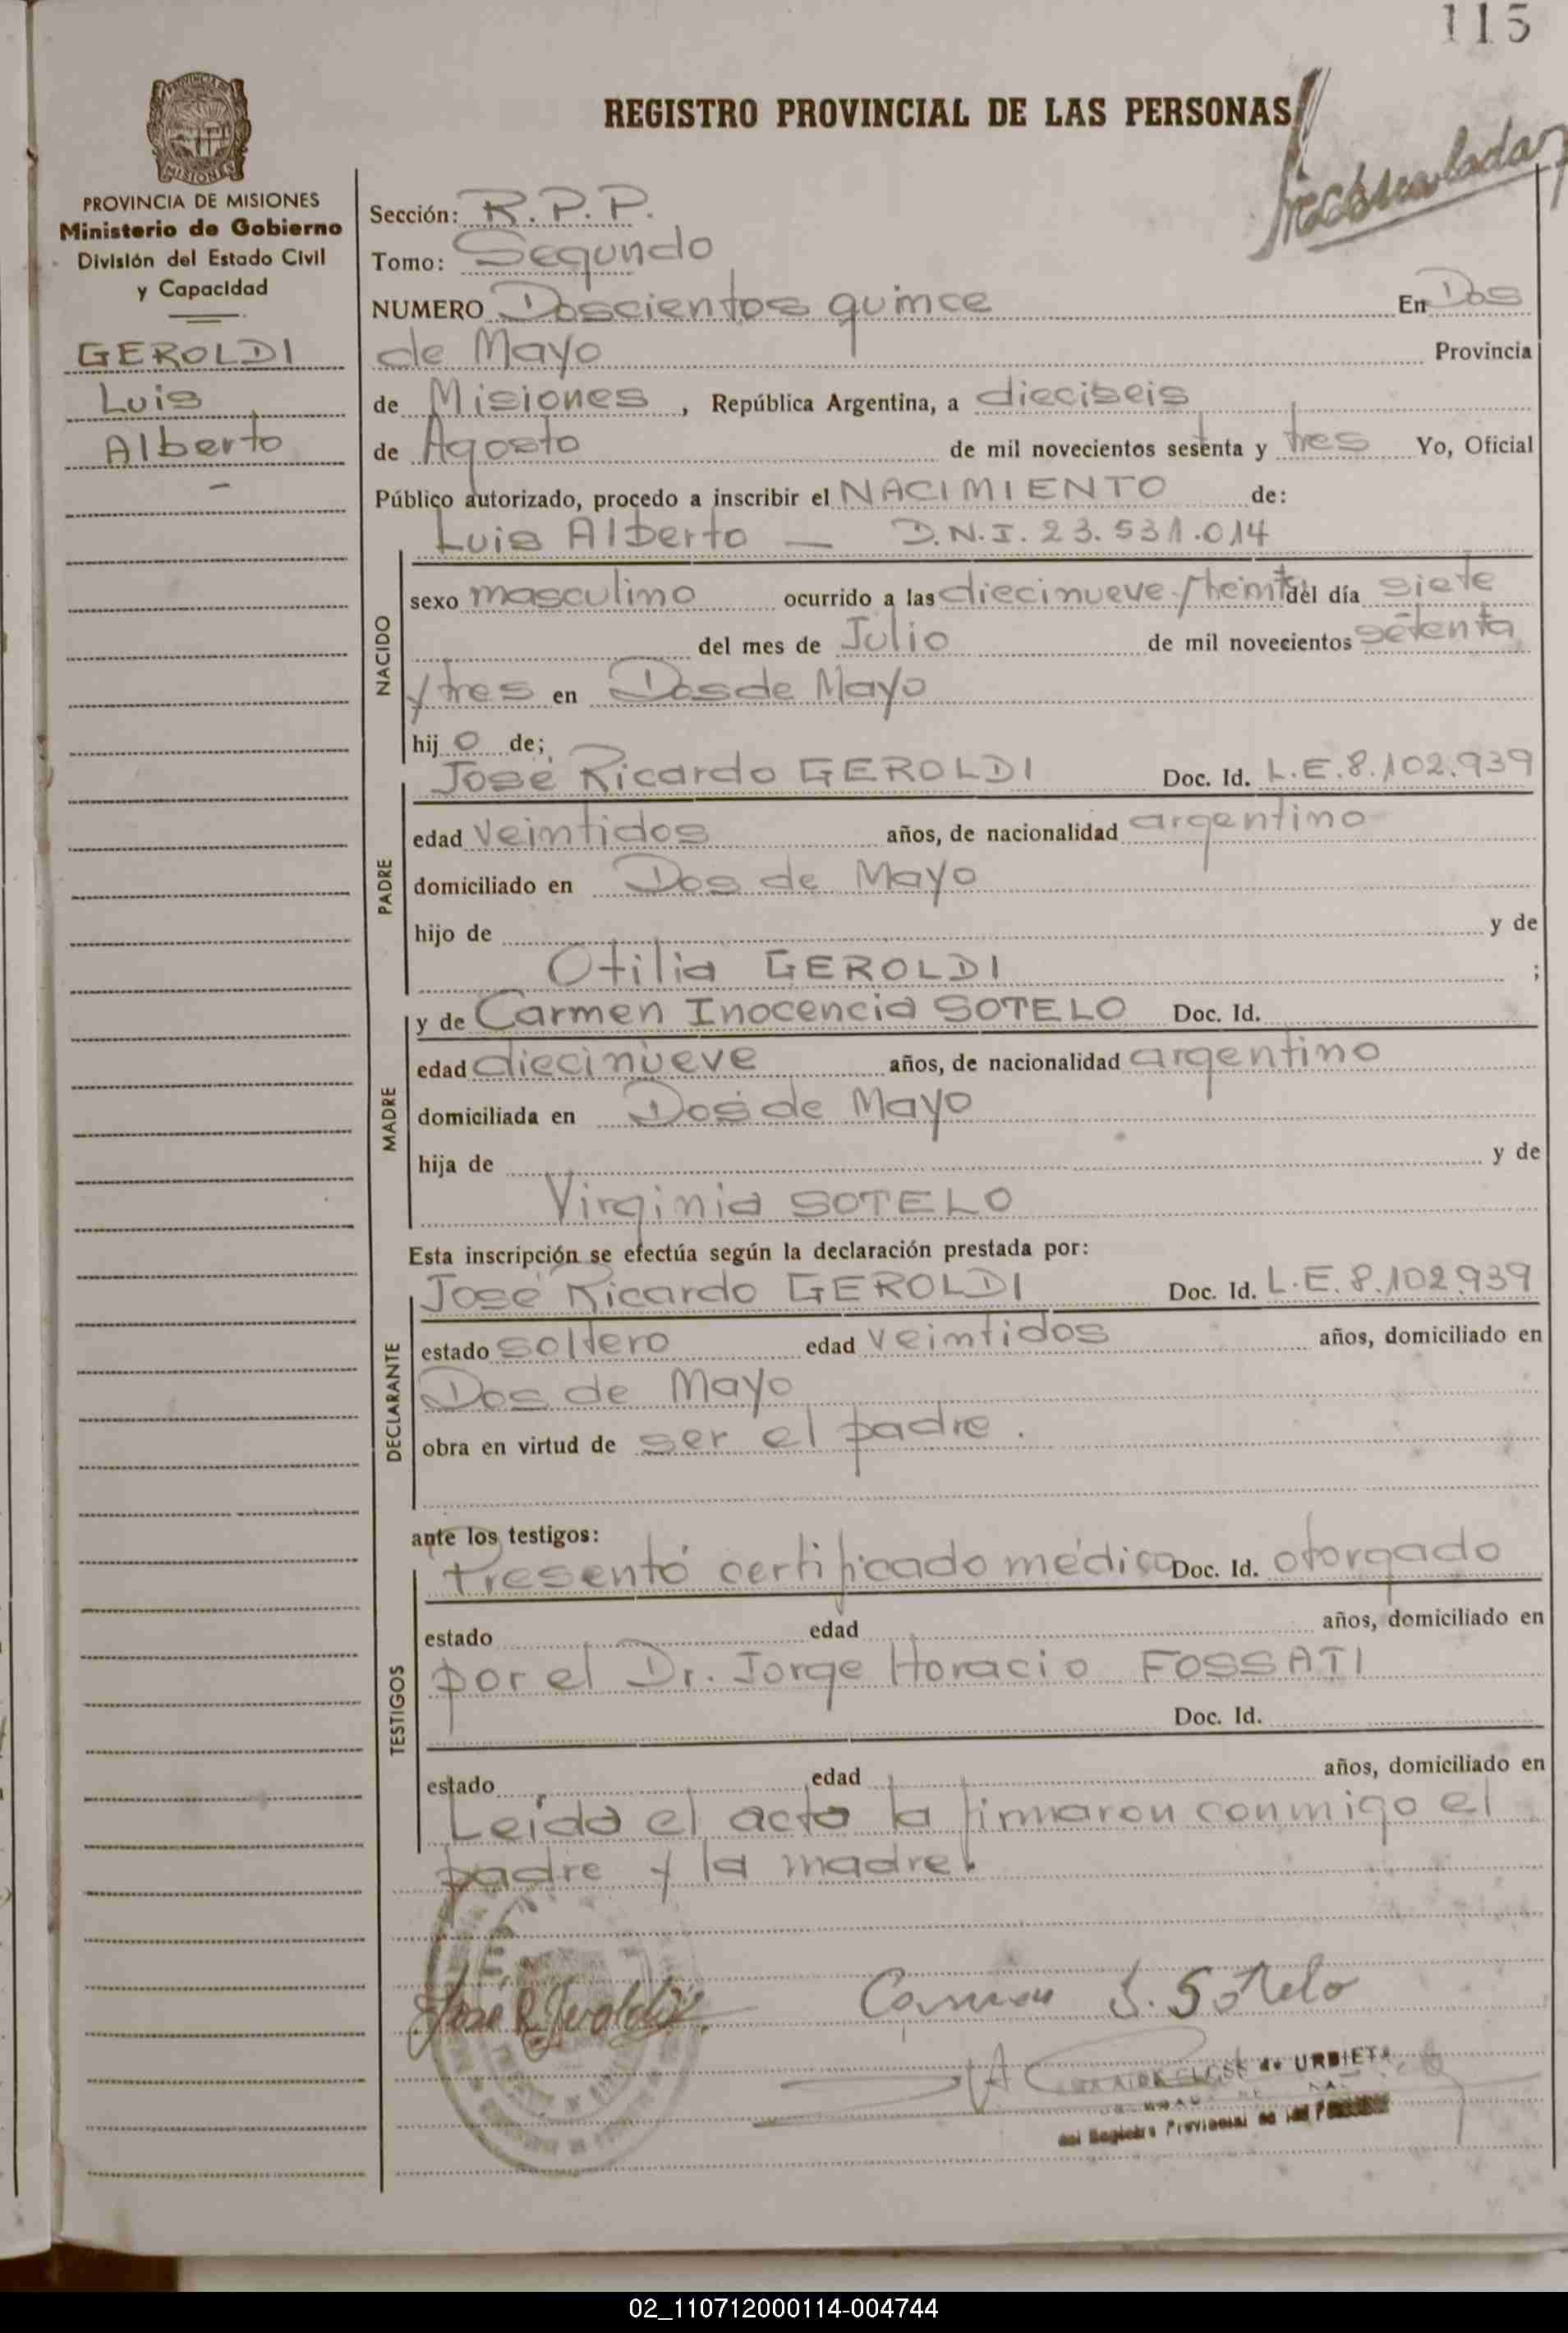 115
REGISTRO PROVINCIAL DE LAS PERSONAS
PROVINCIA DE MISIONES
Ministerio de Gobierno
División del Estado Civil
y Capacidad
GEROLDI
Luis
Alberto
Sección: R.P.P.
Tomo: Segundo
NUMERO Doscientos quince En Dos
de Mayo Provincia
de Misiones, República Argentina, a dieciseis
de Agosto de mil novecientos sesenta y tres Yo, Oficial
Público autorizado, procedo a inscribir el NACIMIENTO de:
Luis Alberto — D.N.I. 23.531.014
NACIDO
sexo masculino ocurrido a las diecinueve del día siete
del mes de Julio de mil novecientos setenta
y tres en Dos de Mayo
hijo de;
PADRE
José Ricardo GEROLDI Doc. Id. L.E. 8.102.939
edad veintidos años, de nacionalidad argentino
domiciliado en Dos de Mayo
hijo de y de
Otilia GEROLDI ;
MADRE
y de Carmen Inocencia SOTELO Doc. Id.
edad diecinueve años, de nacionalidad argentino
domiciliada en Dos de Mayo
hija de y de
Virginia SOTELO
Esta inscripción se efectúa según la declaración prestada por:
DECLARANTE
José Ricardo GEROLDI Doc. Id. L.E. 8.102.939
estado soltero edad veintidos años, domiciliado en
Dos de Mayo
obra en virtud de ser el padre.
ante los testigos:
TESTIGOS
Presentó certificado médico Doc. Id. otorgado
estado edad años, domiciliado en
por el Dr. Jorge Horacio FOSSATI
Doc. Id.
estado edad años, domiciliado en
Leída el acta la firmaron conmigo el
padre y la madre.
José R Geroldi Carmen I. Sotelo
de URBIETA
del Registro Provincial de las Personas
02_110712000114-004744